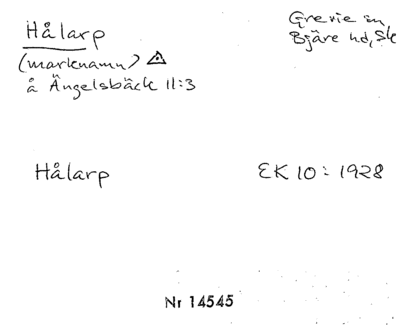 Hålarp
Grevie sn,
Bjäre hd, Sk
(marknamn)
å Ängelsbäck 11:3
Hålarp
EK 10: 1928
Nr 14545